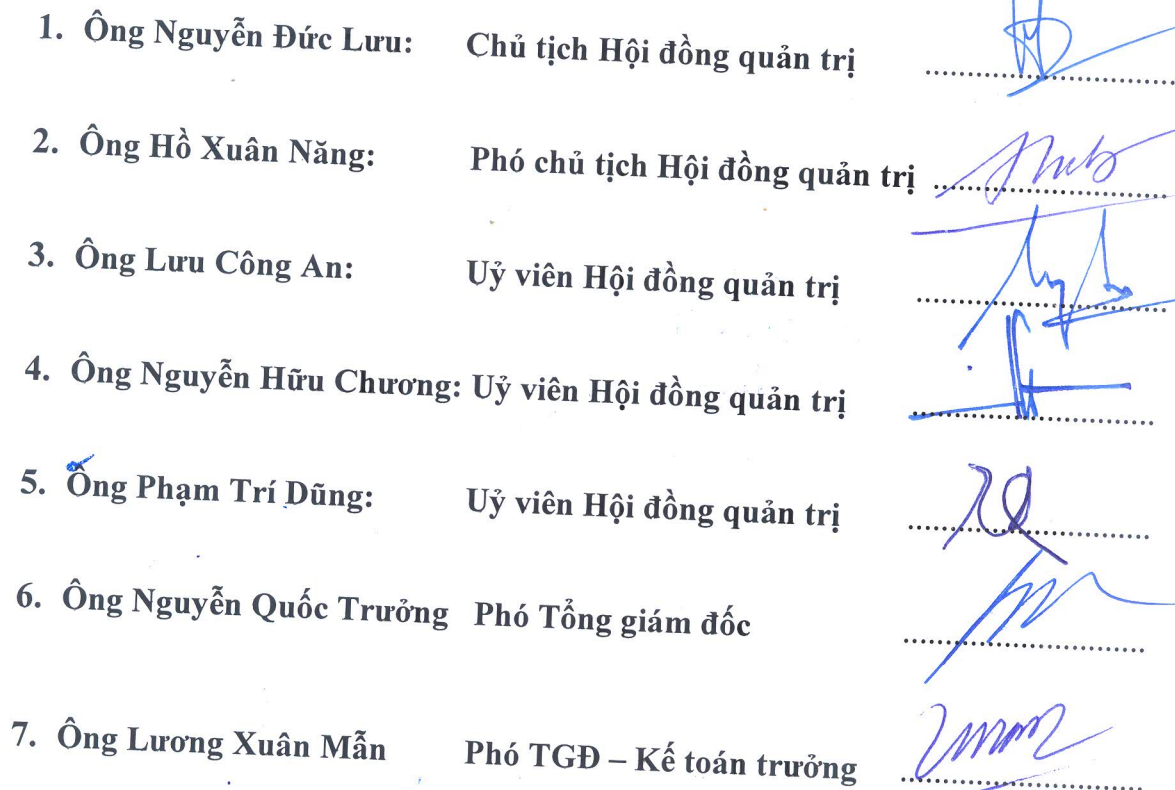 1. Ông Nguyễn Đức Lưu: Chủ tịch Hội đồng quản trị
2. Ông Hồ Xuân Năng: Phó chủ tịch Hội đồng quản trị
3. Ông Lưu Công An: Uỷ viên Hội đồng quản trị
4. Ông Nguyễn Hữu Chương: Uỷ viên Hội đồng quản trị
5. Ông Phạm Trí Dũng: Uỷ viên Hội đồng quản trị
6. Ông Nguyễn Quốc Trưởng Phó Tổng giám đốc
7. Ông Lương Xuân Mẫn Phó TGĐ – Kế toán trưởng